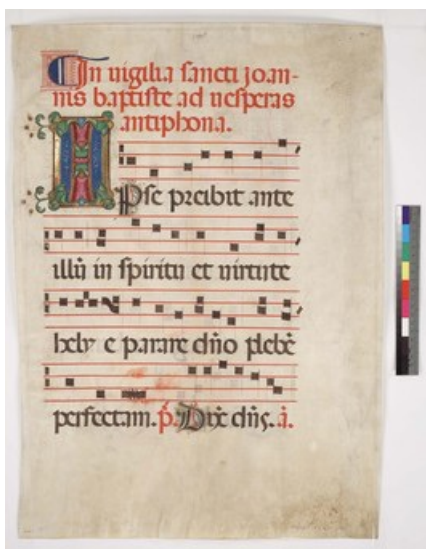 In uigilia sancti joan-
nis baptiste ad uesperas
antiphona.
IPse preibit ante
illũ in spiritu et uirtute
hely e parare dño plebẽ
perfectam. p̃. Dixit dñs. ã.